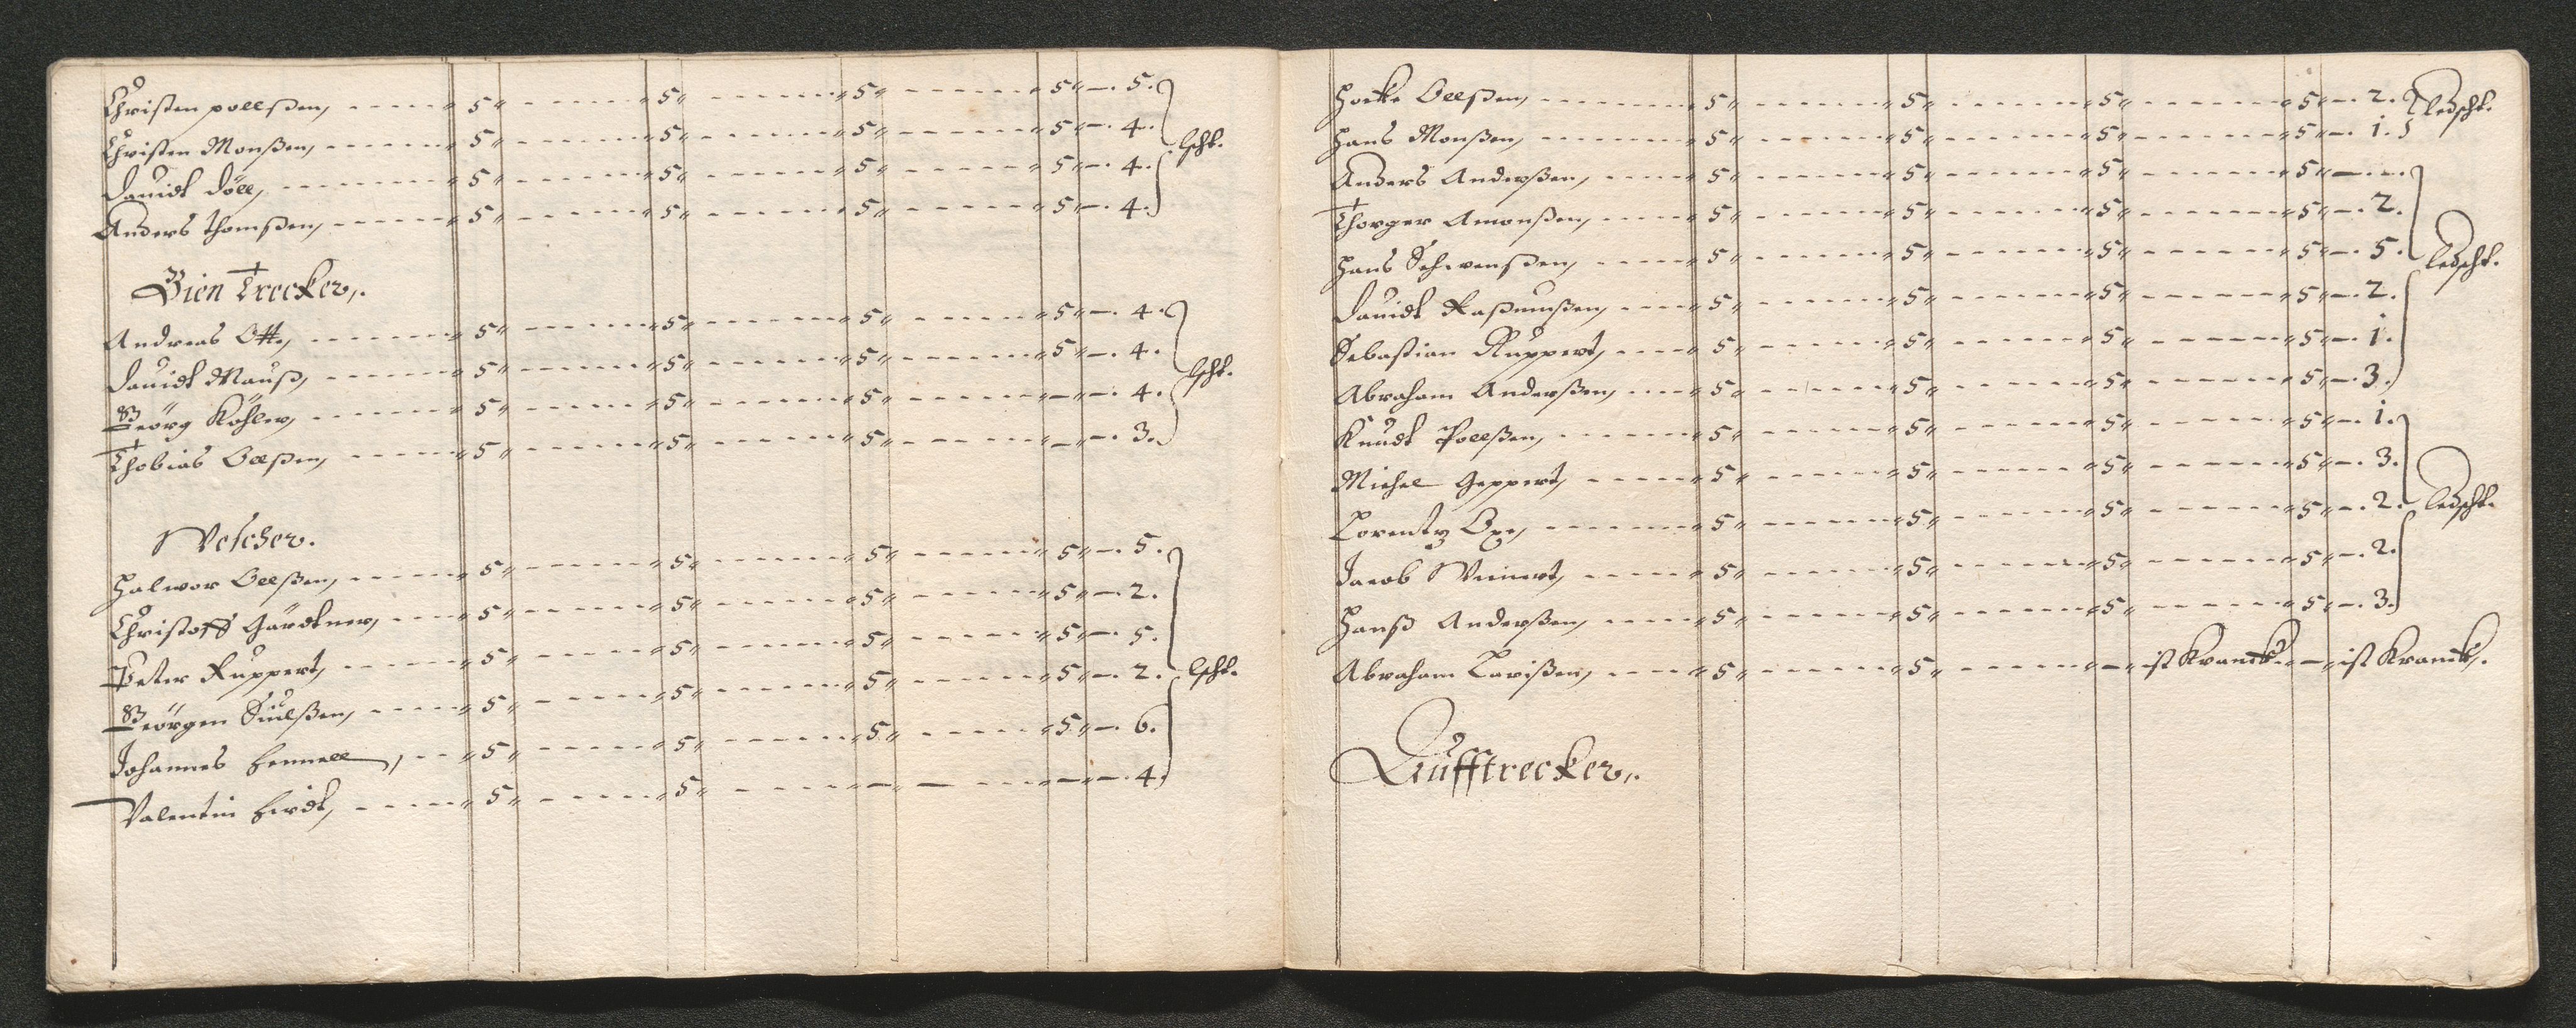 Christen pollßen, 5 5 5 5 — 5.
Christen Monßen, 5 5 5 5 — 4.
Dauidt Döll, 5 5 5 5 — 4.
Anders Thomßen, 5 5 5 5 — 4.
Trecker,.
Andreas Ott, 5 5 5 5 — 4.
Dauidt Mauß, 5 5 5 5 — 4.
Geörg Köhler, 5 5 5 — — 4.
Thobias Olßen, 5 5 5 — — 3.
Wescher.
Halwor Olßen, 5 5 5 5 — 5.
Christoff Gärdtner, 5 5 5 5 — 2.
Peter Ruppert, 5 5 5 5 — 5.
Geörgen 5 5 5 5 — 2.
Johannes Hennell, 5 5 5 5 — 6.
Valentin 5 5 — — — — 4.
Olßen, 5 5 5 5 — 2.
Hans Monßen, 5 5 5 5 — 1.
Anders Anderßen, 5 5 5 5 —
Thorger Amonßen, 5 5 5 5 — 2.
Hans Schwenßen, 5 5 5 5 — 5.
Dauidt Raßmußen, 5 5 5 5 — 2.
Sebastian Ruppert, 5 5 5 5 — 1.
Abraham Anderßen, 5 5 5 5 — 3.
Knudt Pollßen, 5 5 5 5 — 1.
Michel Geppert, 5 5 5 5 — 3.
Lorentz Oxe, 5 5 5 5 — 2.
Jacob Weinert, 5 5 5 5 — 2.
Hanß Anderßen, 5 5 5 5 — 3.
Abraham Larißen, 5 5 — ist Kranck. — ist Kranck.
Lufftrecker,.